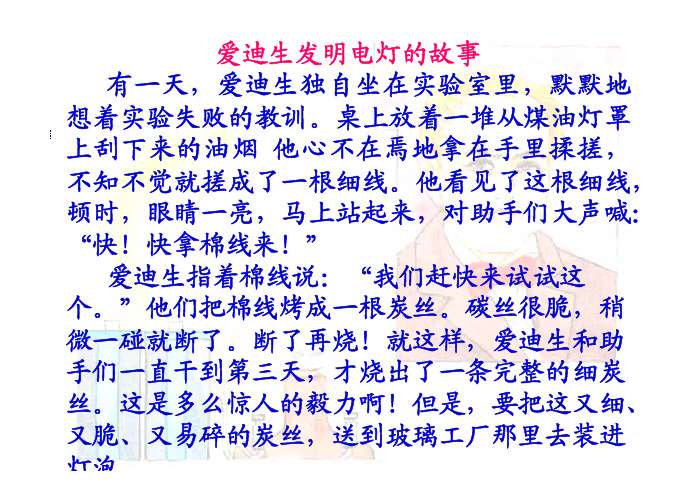 爱迪生发明电灯的故事
有一天，爱迪生独自坐在实验室里，默默地
想着实验失败的教训。桌上放着一堆从煤油灯罩
上刮下来的油烟 他心不在焉地拿在手里揉搓，
不知不觉就搓成了一根细线。他看见了这根细线，
顿时，眼睛一亮，马上站起来，对助手们大声喊：
“快！快拿棉线来！”
爱迪生指着棉线说：“我们赶快来试试这
个。”他们把棉线烤成一根炭丝。碳丝很脆，稍
微一碰就断了。断了再烧！就这样，爱迪生和助
手们一直干到第三天，才烧出了一条完整的细炭
丝。这是多么惊人的毅力啊！但是，要把这又细、
又脆、又易碎的炭丝，送到玻璃工厂那里去装进
灯泡